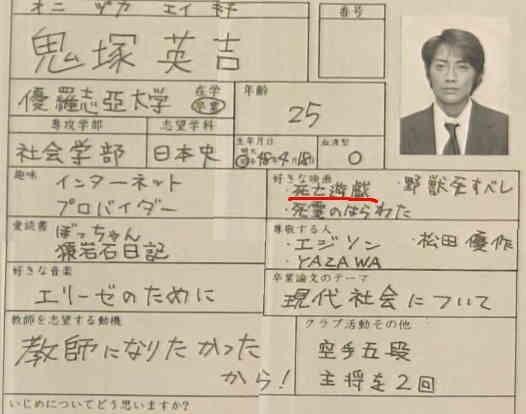 オニ ヅカ エイ キチ
番号
鬼塚英吉
優羅志亞大学
在学
卒業
年齢
25
専攻学部
志望学科
生年月日
血液型
社会学部
日本史
O
趣味
インターネット
プロバイダー
好きな映画
・死亡遊戯 ・野獣死すべし
・死霊のはらわた
愛読書
ぼっちゃん
猿岩石日記
尊敬する人
・エジソン ・松田優作
・YAZAWA
好きな音楽
エリーゼのために
卒業論文のテーマ
現代社会について
教師を志望する動機
教師になりたかった
から!
クラブ活動その他
空手五段
主将を2回
いじめについてどう思いますか?